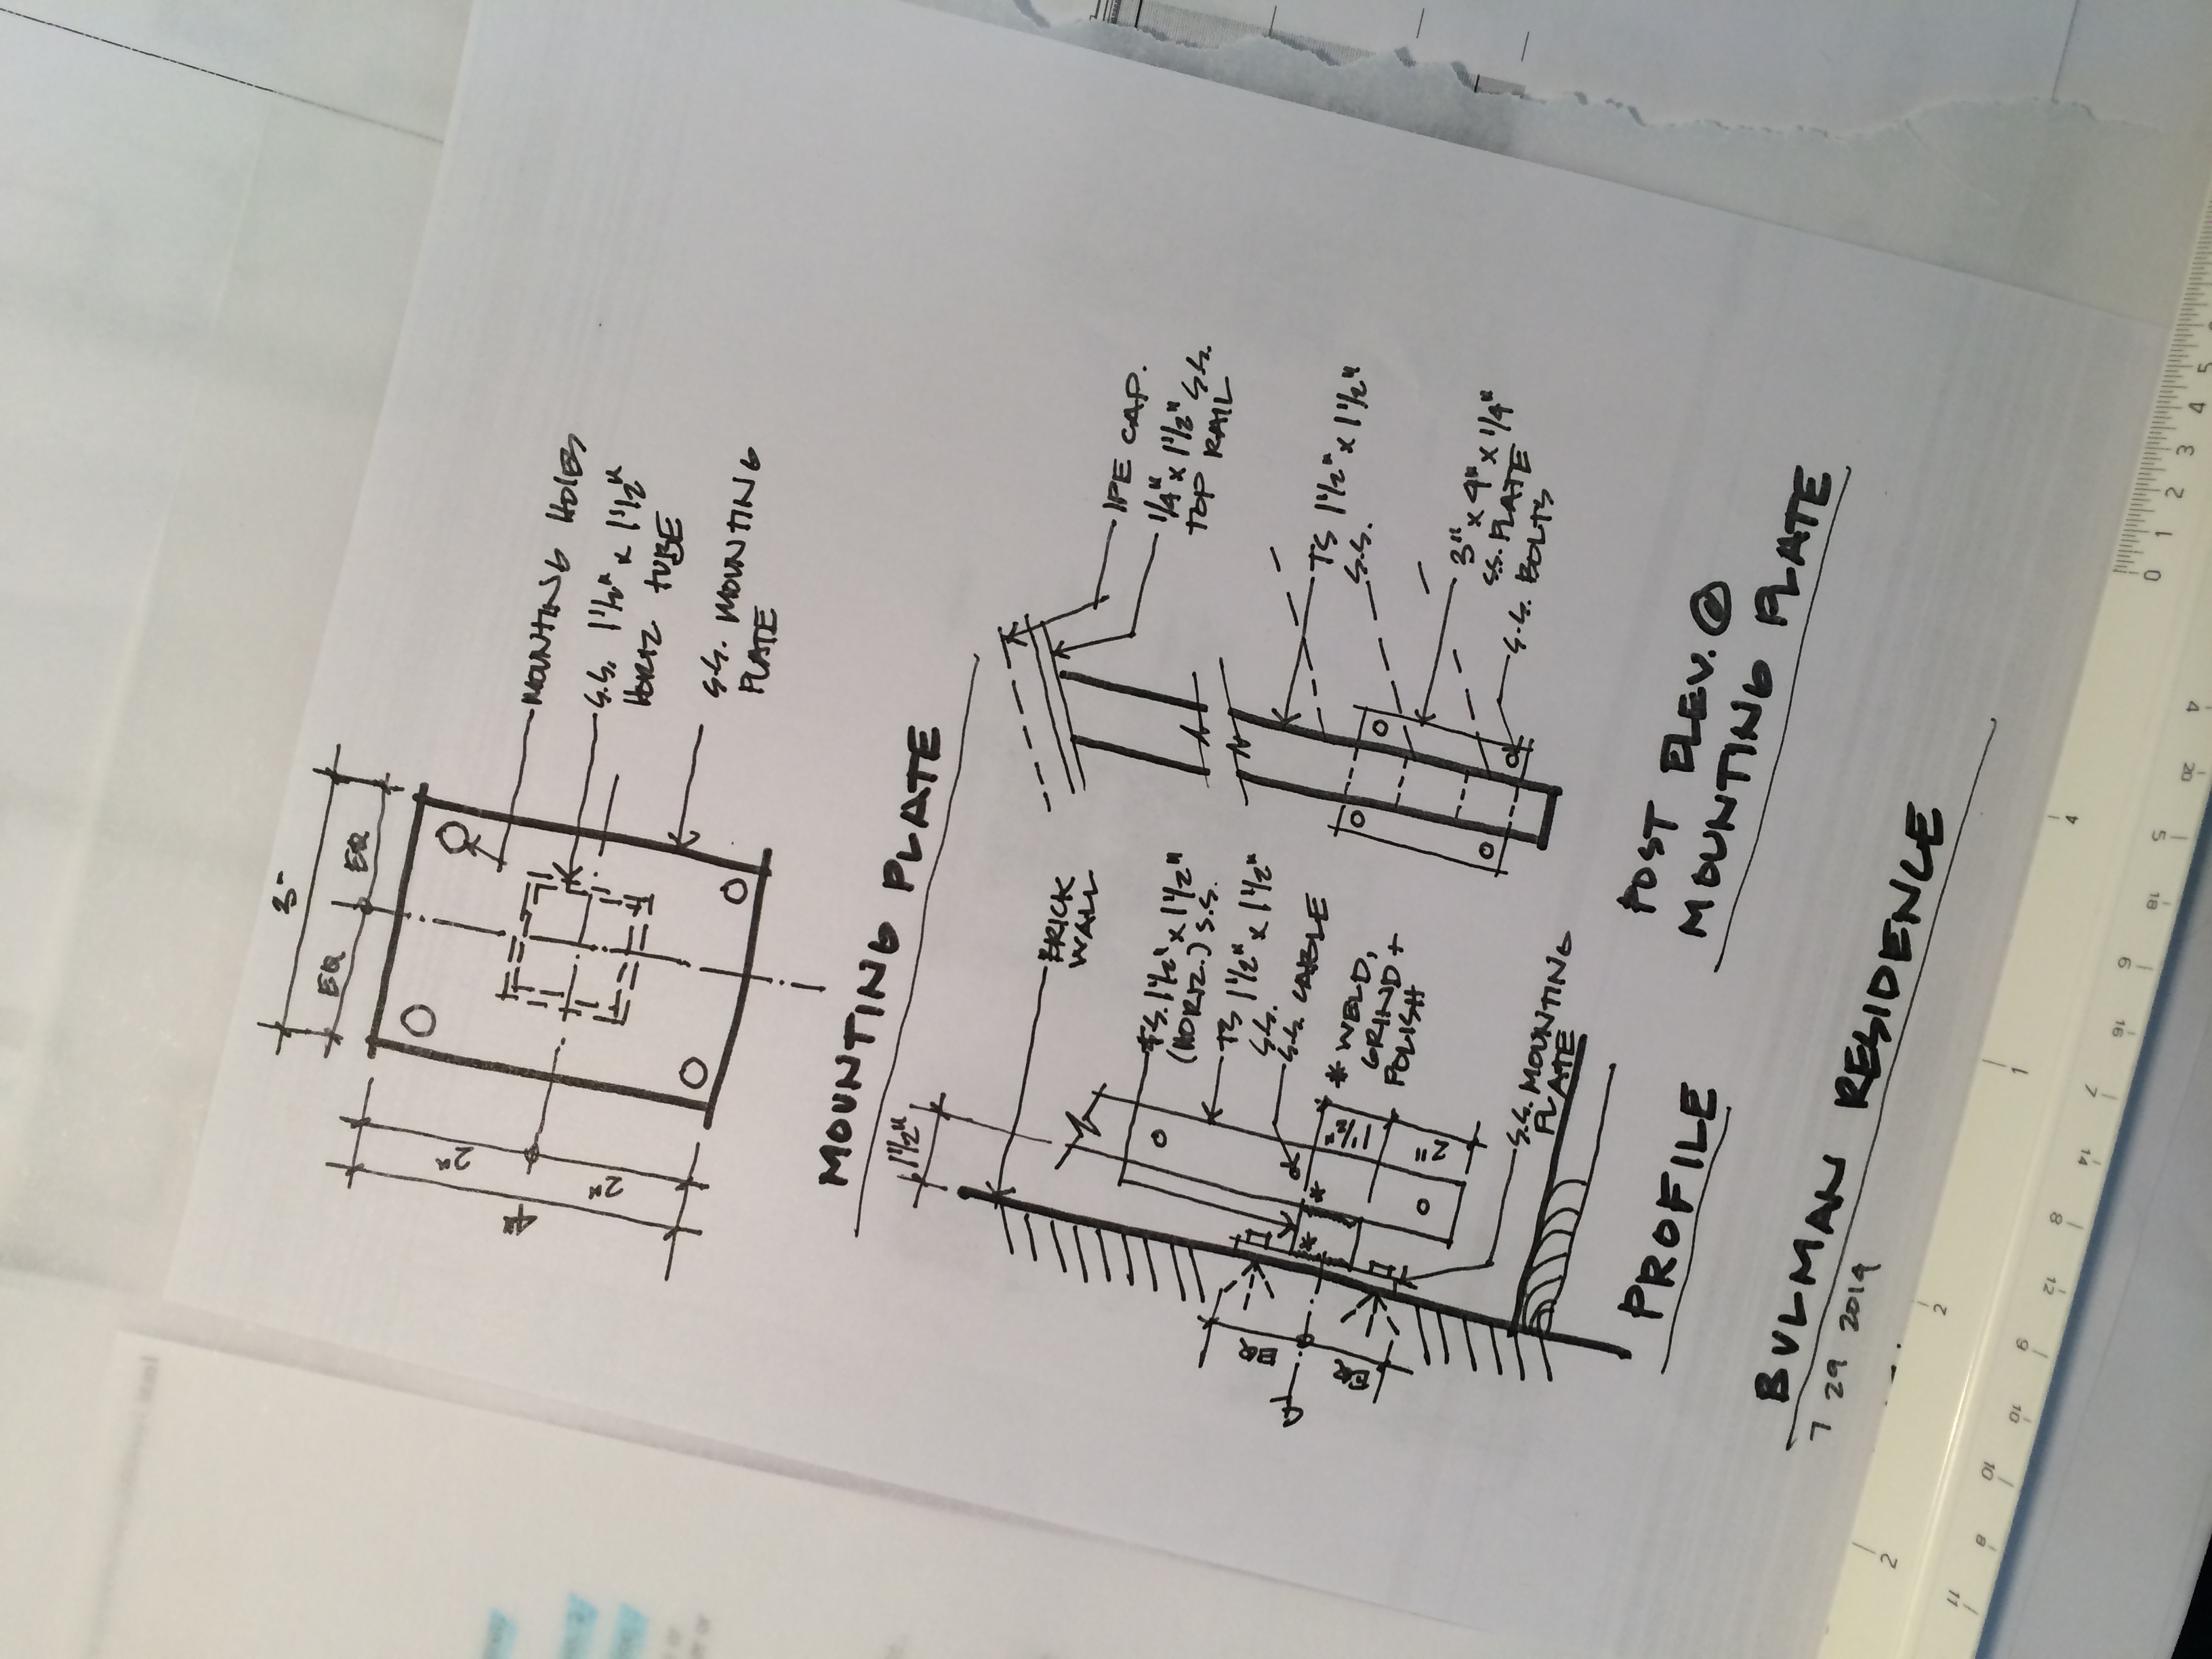 3"
EQ
EQ
2"
2"
4"
MOUNTING HOLES
S.S. 1 1/2" x 1 1/2"
HORIZ TUBE
S.S. MOUNTING
PLATE
MOUNTING PLATE
1 1/2"
BRICK
WALL
TS. 1 1/2" x 1 1/2"
(HORIZ.) S.S.
TS 1 1/2" x 1 1/2"
S.S.
S.S. CABLE
* WELD,
GRIND +
POLISH
*
*
2"
EQ
EQ
S.S. MOUNTING
PLATE
PROFILE
IPE CAP.
1/4" x 1 1/2" S.S.
TOP RAIL
TS 1 1/2" x 1 1/2"
S.S.
3" x 4" x 1/4"
S.S. PLATE
S.S. BOLTS
POST ELEV. @
MOUNTING PLATE
BULMAN RESIDENCE
7 29 2014
0 1 2 3 4 5
4
20
4
5
18
6
16
1
7
14
8
12
2
9
10
10
8
2
11